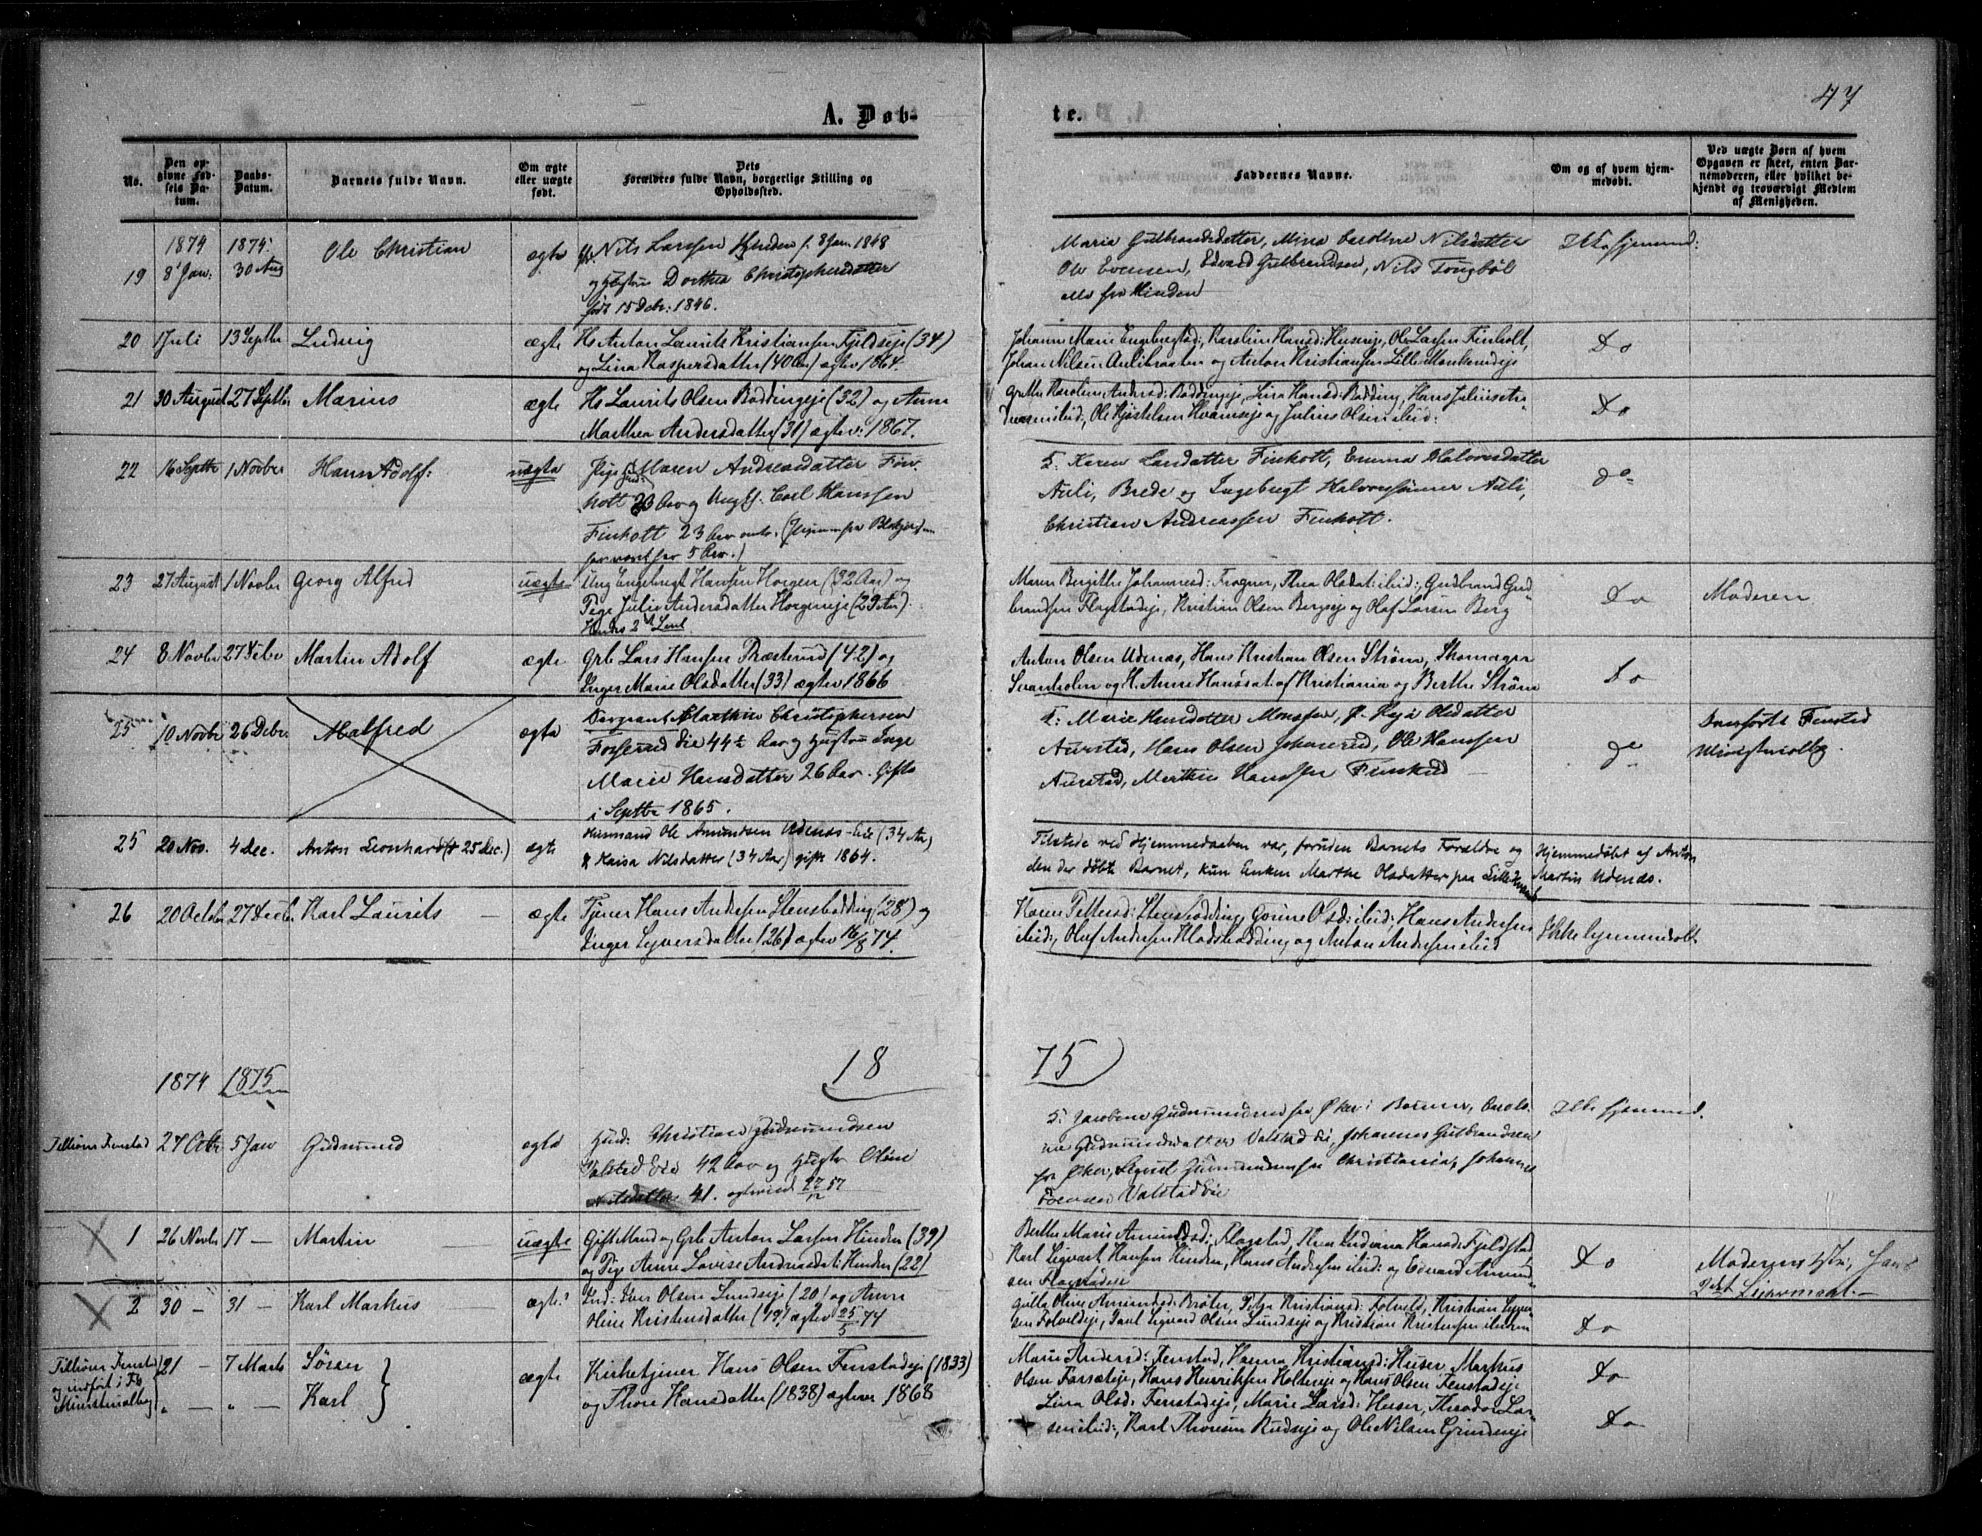 47
A. Døb-
te.
No.
Den op-
givne Fød-
sels Da-
tum.
Daabs-
Datum.
Barnets fulde Navn.
Om ægte
eller uægte
født.
Dets
Forældres fulde Navn, borgerlige Stilling og
Opholdssted.
Faddernes Navne.
Om og af hvem hjem-
medøbt.
Ved uægte Børn af hvem
Opgaven er skeet, enten Bar-
nemoderen, eller hvilket be-
kjendt og troværdigt Medlem
af Menigheden.
19
1874
8 Jan:
1874:
30 Aug
Ole Christian
ægte
Nils Larssen Hynden f. 8 Jan. 1848
og Hustru Dorthea Christophersdatter
født 15 Debr: 1846.
Maria Gulbrandsdatter, Mina Caroline Nilsdatter
Ole Evensen, Edvard Gulbrandsen, Nils Tongbøl
alle fra Hinden
20
1 Juli
13 Septbr
Ludvig
ægte
Hs Anton Laurits Kristiansen Fjeldseje (34)
og Lina Kaspersdatter (40 Aar) ægtev 1864.
Johanne Marie Engebrgstad, Karoline Hansd: Husereje, Ole Larsen Finholt,
Johan Nilsen Aulibraaten og Anton Kristiansen Lille Munkerudeje
Do
21
30 August
27 Septbr
Marius
ægte
Hs Laurits Olsen Bøddingeje (32) og Anne
Marthea Andersdatter (31) ægtev: 1867.
Grethe Karoline Andersd: Bøddingeje, Lina Hansd: Bødding, Hans Julius
ibid:, Ole Kjøstelsen Hvamseje og Julius Olsen ibid:
Do
22
16 Septbr
1 Novbr
Hans Adolf:
uægte
Pige Maren Andreasdatter Fin-
holt 23 Aar og Ungk. Carl Hanssen
Finholt 23 Aar
for 5 Aar.)
F: Karen Larsdatter Finholt, Emma Halvorsdatter
Auli, Brede og Ingebrgt Halvorsønner Auli,
Christian Andreassen Finholt.
do
23
27 August
1 Novbr
Georg Alfred
uægte
Ung. Engebrigt Hansen Horgen (32 Aar) og
Pige Julie Andersdatter Horgeneje (29 Aar).
Hendes 2det Leiel
Maren Birgithe Johannesd: Frogner, Thea Olsdat: ibid:, Gudbrand Gud-
brandsen Flagstadeje, Kristian Olsen Bergseje og Olaf Larsen Berg
Do
Moderen
24
8 Novbr
27 Debr
Martin Adolf
ægte
Grb. Lars Hansen Præsterud (42) og
Inger Marie Olsdatter (33) ægtev 1866
Anton Olsen Udenæs, Hans Kristian Olsen Strøm, Skomager
Svanholm og H. Anne Hansdat: af Kristiania og Berthe Strøm
Do
25
10 Novbr
26 Debr
Malfred
ægte
Sergeant Marthin Christophersen
44 Aar og Hustru Inge
Marie Hansdatter 26 Aar. Gifte
i Septbr 1865.
F: Marie Hansdatter Monsen, P. Kaja Olsdatter
Aurstad, Hans Olsen Johnsrud, Ole Hanssen
Aurstad, Marthin Hanssen
do
Overført Fenstad
Ministerialbog.
25
20 Nov.
4 Dec.
Anton Leonhard († 25 Dec.)
ægte
Husmand Ole Amundsen Udenæs-Eie (34 Aar)
& Kaisa Nilsdatter (34 Aar) gift 1864.
Tilstede ved Hjemmedaaben var, foruden Barnets Forældre og
den der døbte Barnet, kun Enken Marthe Olsdatter paa
Hjemmedøbt af Anton
Martin Udenæs.
26
20 Octobr
27 Decbr
Karl Laurits
ægte
Tjener Hans Andersen Stensbødding (28) og
Inger Syversdatter (26) ægtev 16/8 74.
Karen Pettersd: Stensbødding, Gorine Olsd: ibid:, Hans Andersen
ibid:, Oluf Andersen Kladsbødding og Anton Andersen ibid
Ikke hjemmedøbt
18
75
1874
1875
Tilhører Fenstad
24 Octbr
5 Jan
Gudmund
ægte
Husd: Christian Gudmundsen
Valstad Eie 42 Aar og Hustr Oline
Nilsdatter 41. ægteviede 27/12 57
F: Jacobine Gudmundsen fra Øker i Bærum,
Gudmundsdatter Valstad Eie, Johannes Gulbrandsen
fra Øker, Sigvart Gudmundsen fra Christiania, Johannes
Valstad Eie
1
26 Novbr
17 —
Martin
uægte
Gift Mand og Grb Anton Larsen Hinden (39)
og Pige Anne Lovise Andreasdat: Hinden (22)
Berthe Marie Amundsd: Flagstad, Thea Gudiana Hansd: Fjeldstad
Karl Sigvart Hansen Hinden, Hans Andersen ibid: og Edvard Amund-
sen Flagstadeje
Do
Moderens 1ste, Hans
2det Leiermaal.
2
30 —
31 —
Karl Markus
ægte
Ind: Iver Olsen Lundseje (20) og Anne
Oline Kristensdatter (19) ægtev 25/5 74
Gulla Oline Amundsd: Brøter, Petra Kristiansd: Folveld, Kristian Syver-
sen Folveldeje, Paul Sigvard Olsen Lundseje og Kristian Kristensen ibidem
Do
Tilhører Fenstad
og indført i F's
Ministerialbog
21 —
7 Marts
Søren
ægte
Kirketjener Hans Olsen Fenstadeje (1833)
og Thore Hansdatter (1838) ægtev 1868
Marie Andersd: Fenstad, Hanna Kristiansd: Huser, Markus
Olsen Farseteje, Hans Henriksen Holtereje og Hans Olsen Fenstadeje
Do
" —
" —
Karl
Lina Olsd: Fenstadeje, Marie Larsd: Huser, Theodor Lar-
sen ibid:, Karl Thoresen Rudseje og Ole Nilsen Grindereje
Do